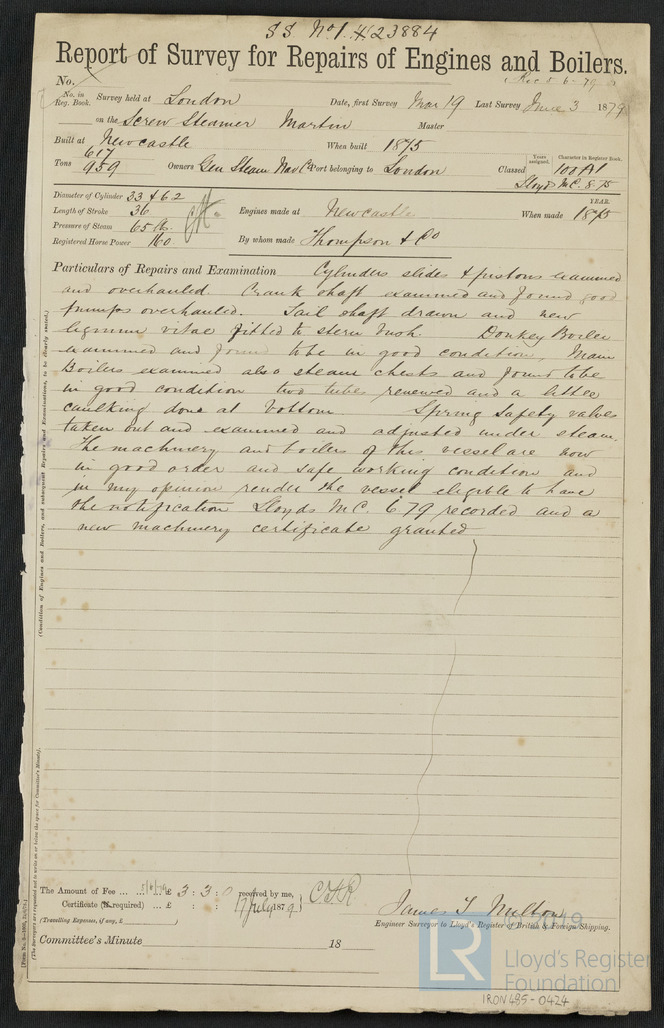 SS No 1. 23884
Report of Survey for Repairs of Engines and Boilers.
No.
(Rec 5 6-79)
No. in Reg. Book. Survey held at London Date, first Survey Mar 19 Last Survey June 3 1879
on the Screw Steamer Martin Master
Built at Newcastle When built 1875
Tons 617 959 Owners Gen Steam Nav Co Port belonging to London
Years assigned. Character in Register Book.
Classed 100A1
Lloyds MC. 8.75
Diameter of Cylinder 33 & 62
Length of Stroke 36
Pressure of Steam 65 lb.
Registered Horse Power 160
Engines made at Newcastle
YEAR.
When made 1875
By whom made Thompson & Co
Particulars of Repairs and Examination Cylinders slides & pistons examined
and overhauled. Crank shaft examined and found good
pumps overhauled. Tail shaft drawn and new
lignum vitae fitted to stern bush Donkey Boiler
examined and found to be in good condition, Main
Boilers examined also steam chests and found to be
in good condition two tubes renewed and a little
caulking done at bottom Spring Safety valves
taken out and examined and adjusted under steam.
The machinery and boilers of this vessel are now
in good order and safe working condition and
in my opinion render the vessel eligible to have
the notification Lloyds MC. 6 79 recorded and a
new machinery certificate granted
(Condition of Engines and Boilers, and subsequent Repairs and Examinations, to be clearly stated.)
(The Surveyors are requested not to write on or below the space for Committee's Minute).
The Amount of Fee ... ... 5/6/79 £ 3 : 3 : 0 received by me,
Certificate (if required) ... £ : : 17 July 1879
(Travelling Expenses, if any, £ )
James T Milton
Engineer Surveyor to Lloyd's Register of British & Foreign Shipping.
Committee's Minute 18
© 2019
LR
Lloyd's Register
Foundation
IRON485-0424